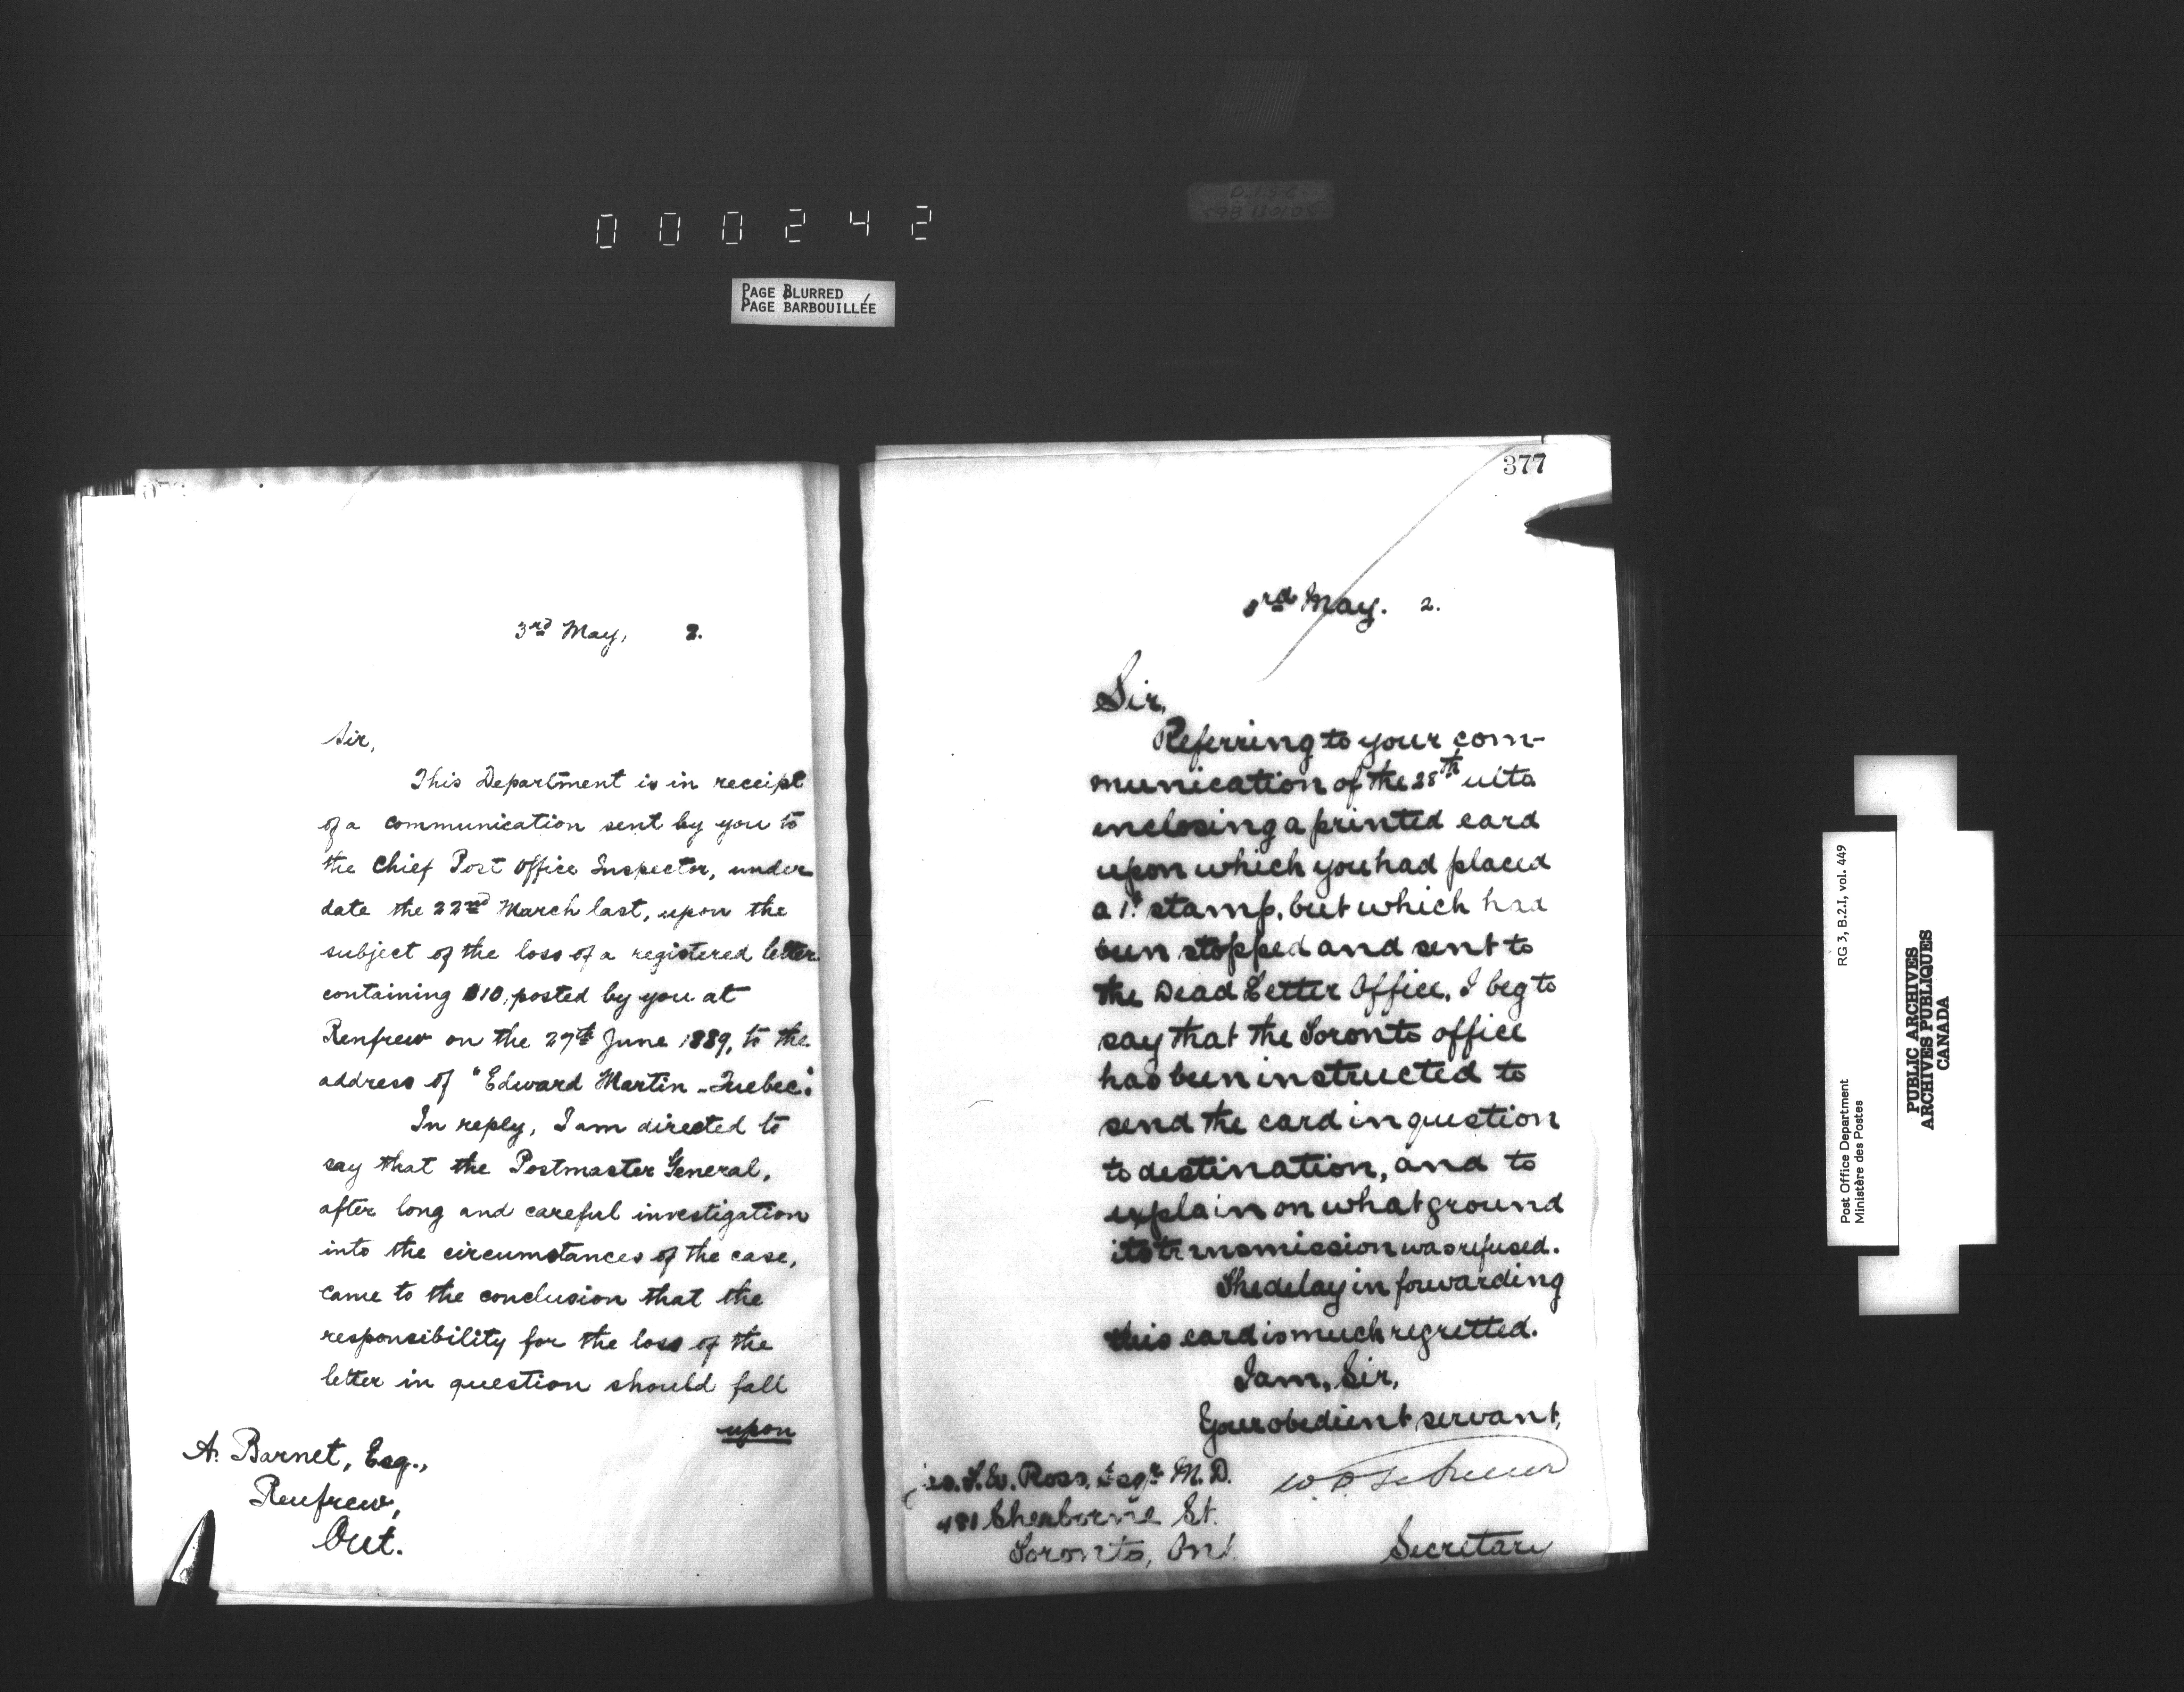 000242
PAGE BLURRED
PAGE BARBOUILLÉE
3rd May, 2.
Sir,
This Department is in receipt
of a communication sent by you to
the Chief Post Office Inspector, under
date the 22nd March last, upon the
subject of the loss of a registered letter
containing $10, posted by you at
Renfrew on the 27th June 1889, to the
address of "Edward Martin - Quebec."
In reply, I am directed to
say that the Postmaster General,
after long and careful investigation
into the circumstances of the case,
came to the conclusion that the
responsibility for the loss of the
letter in question should fall
upon
A. Barnet, Esq.,
Renfrew,
Ont.
377
3rd May. 2.
Sir,
Referring to your com-
munication of the 28th ulto
enclosing a printed card
upon which you had placed
a 1¢ stamp, but which had
been stopped and sent to
the Dead Letter Office, I beg to
say that the Toronto office
has been instructed to
send the card in question
to destination, and to
explain on what ground
its transmission was refused.
The delay in forwarding
this card is much regretted.
I am, Sir,
Your obedient servant,
Ross, Esqr. M.D.
481 Sherborne St.
Toronto, Ont.
Secretary
RG 3, B.2.I, vol. 449
Post Office Department
Ministère des Postes
PUBLIC ARCHIVES
ARCHIVES PUBLIQUES
CANADA